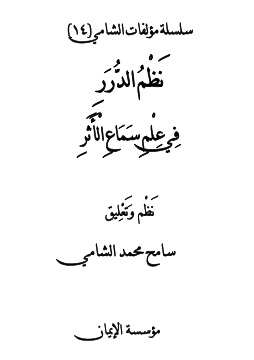 سلسلة مؤلفات الشامي (١٤)
نَظْمُ الدُّرَرِ
فِي عِلْمِ سَمَاعِ الْأَثَرِ
نَظْم وَتَعْلِيق
سامح محمد الشامي
مؤسسة الإيمان